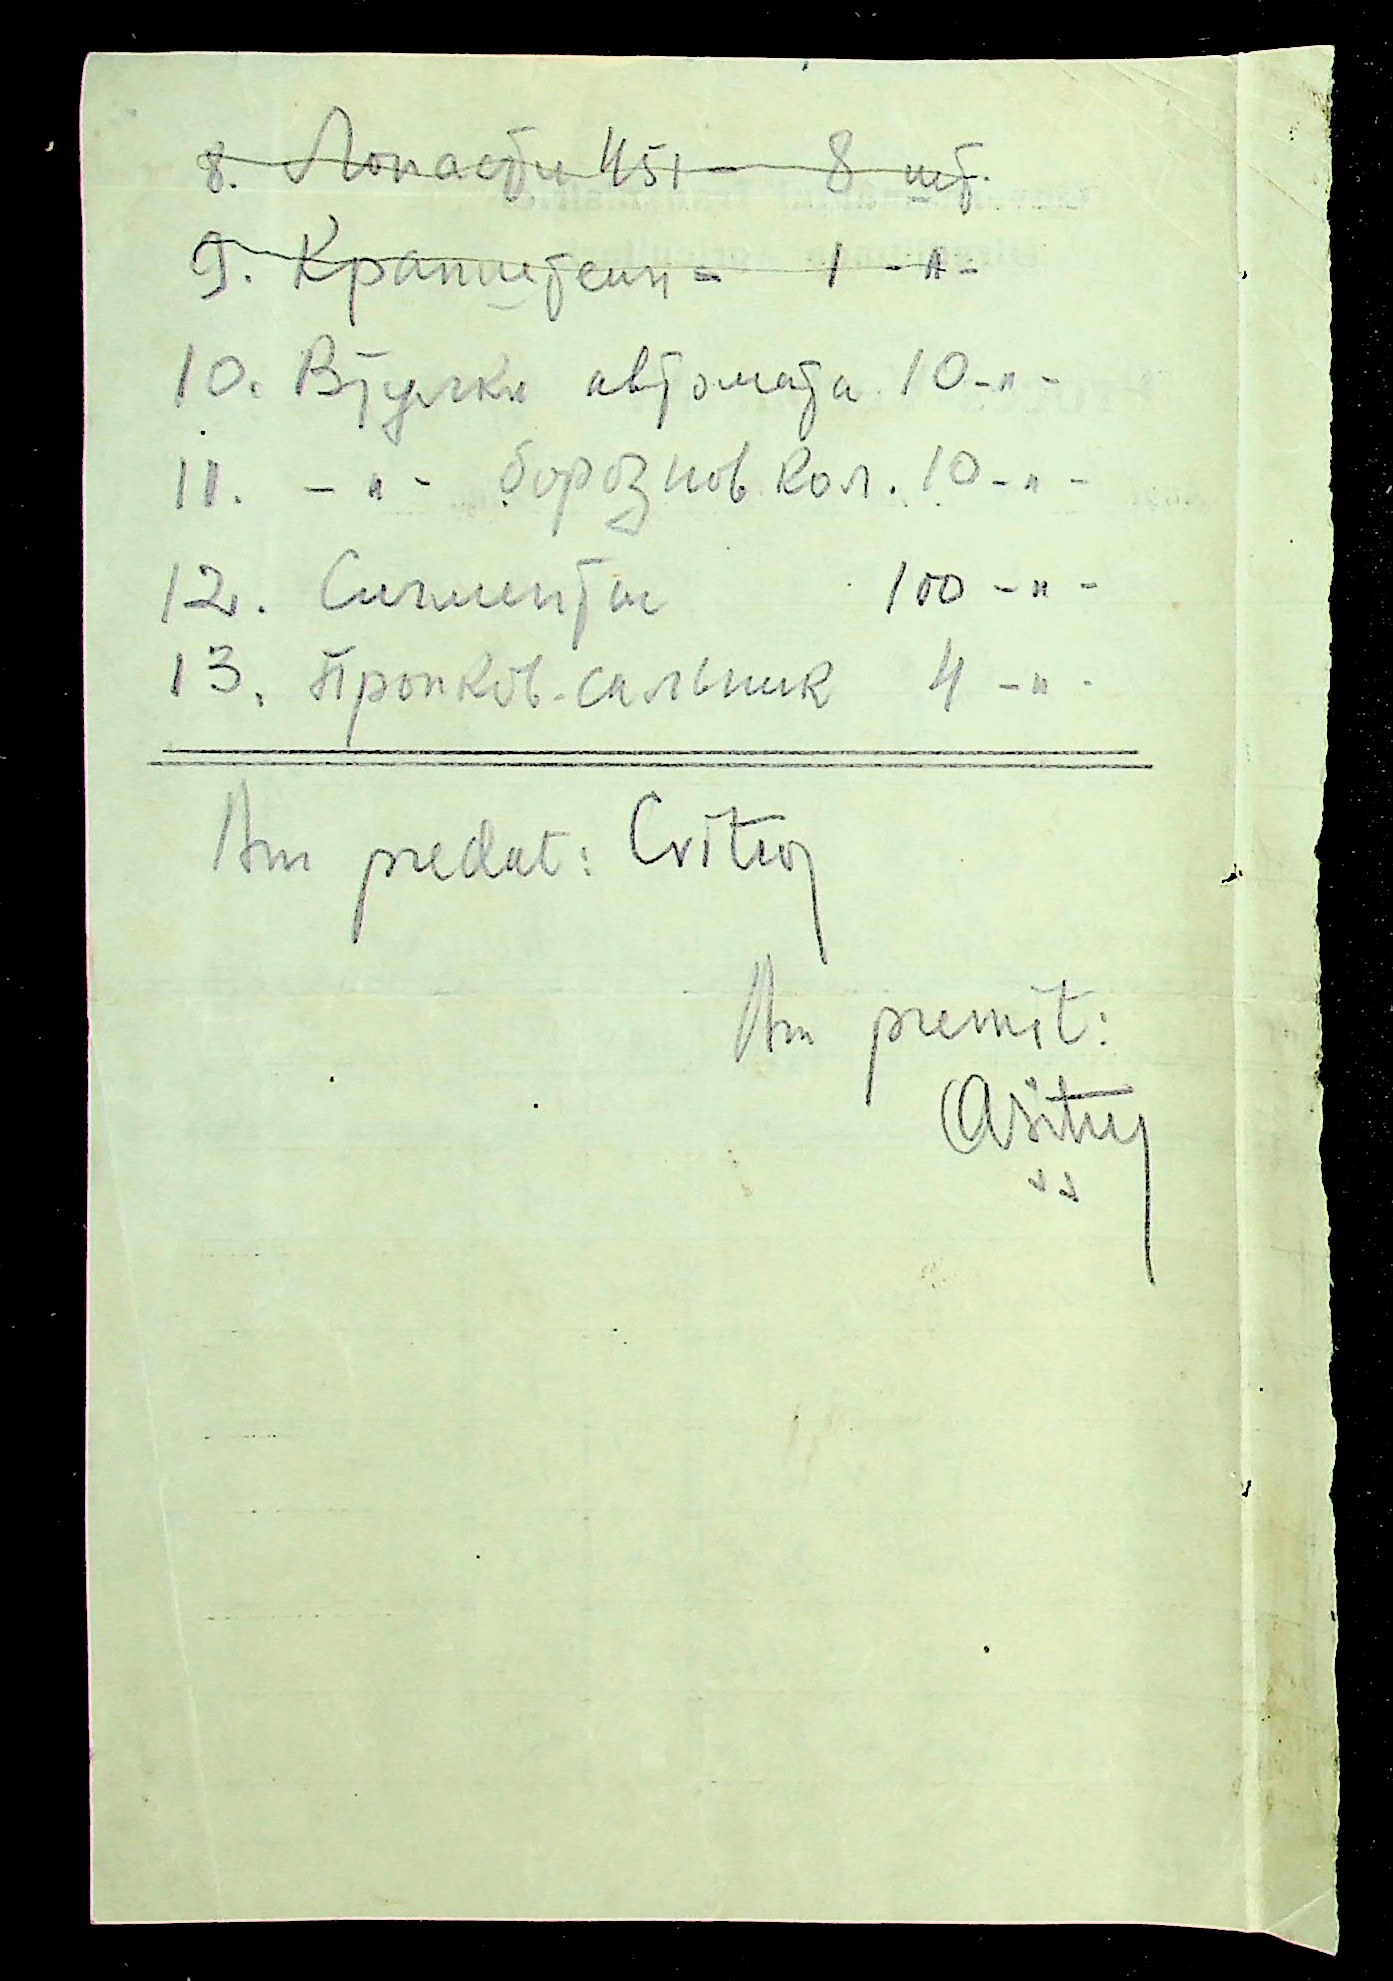 8. Лопасти 451 – 8 шт.
9. Кранштеин = 1 -"-
10. Втулки автомата 10 -"-
11. -"- борознов кол. 10 -"-
12. Сигменты 100 -"-
13. Пропков-сальник 4 -"-
Am predat:
Am premit: